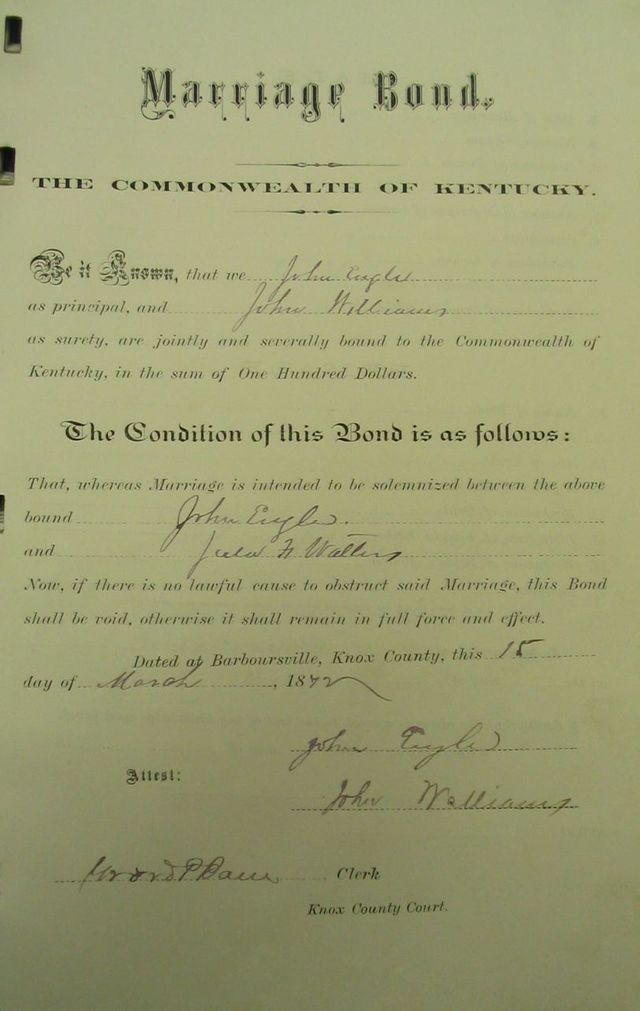 Marriage Bond.
THE COMMONWEALTH OF KENTUCKY.
Be it Known, that we John Engle
as principal, and John Williams
as surety, are jointly and severally bound to the Commonwealth of
Kentucky, in the sum of One Hundred Dollars.
The Condition of this Bond is as follows:
That, whereas Marriage is intended to be solemnized between the above
bound John Engle.
and Walters
Now, if there is no lawful cause to obstruct said Marriage, this Bond
shall be void, otherwise it shall remain in full force and effect.
Dated at Barboursville, Knox County, this 15
day of March, 1872
John Engle
Attest:
John Williams
Clerk
Knox County Court.